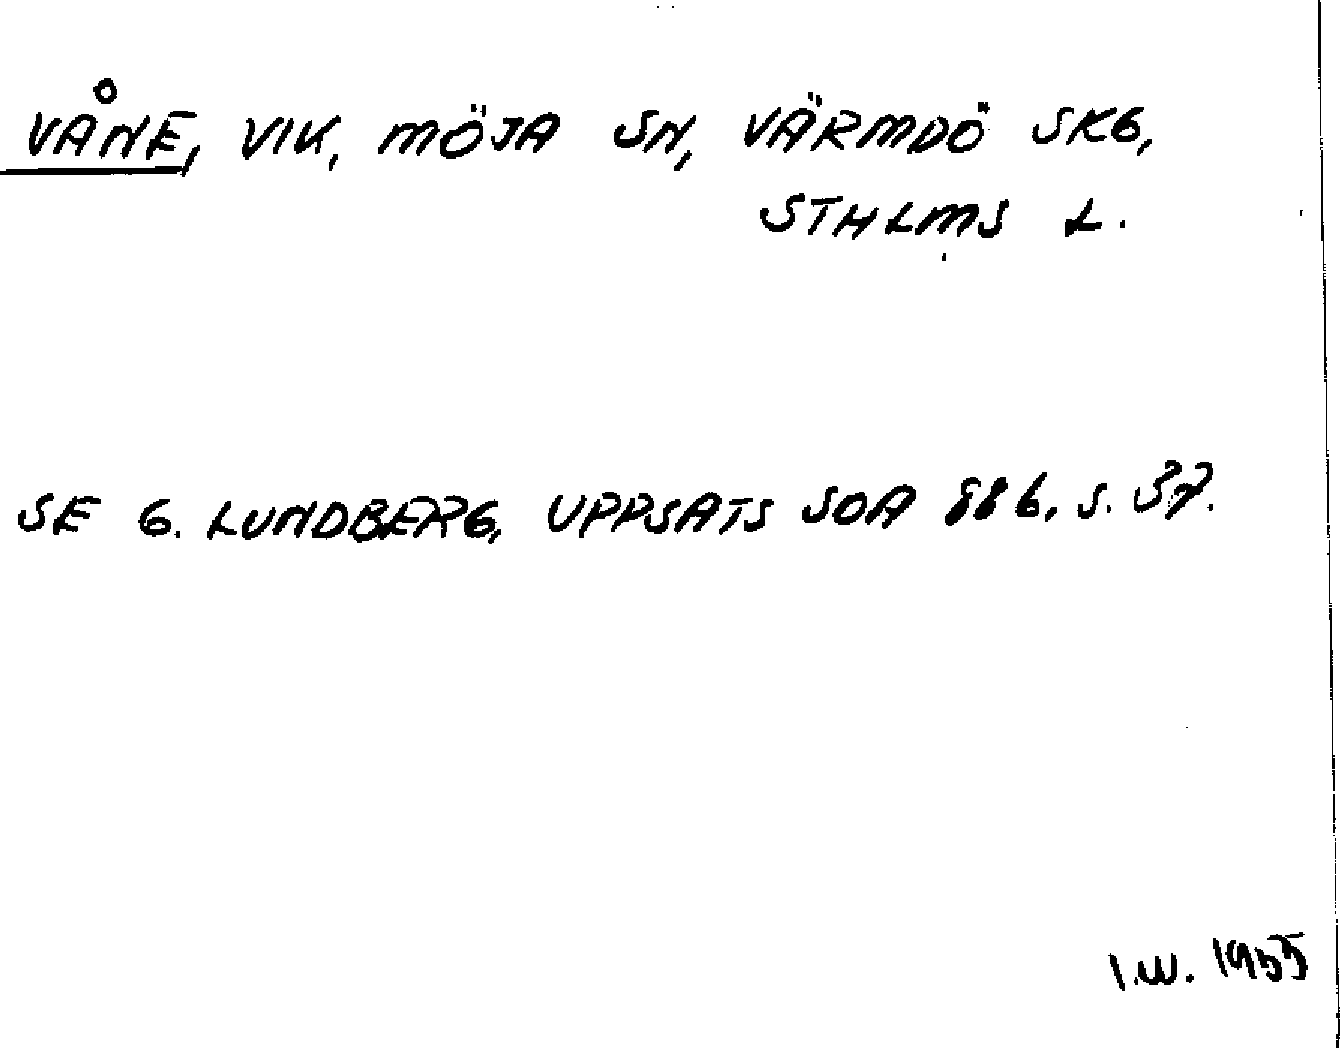 VÅNE, VIK, MÖJA SN, VÄRMDÖ SKG,
STHLMS L.
SE G. LUNDBERG, UPPSATS SOA 886, S. 37.
I.W. 1955